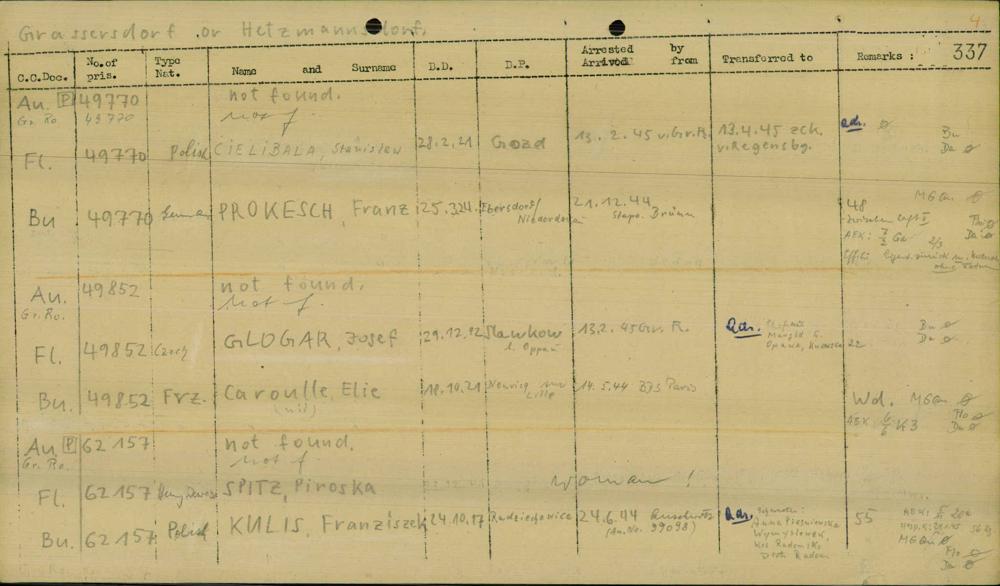 Grassersdorf or Hetzmannsdorf.
4.
C.C.Doc. No.of pris. Type Nat. Name and Surname D.D. D.P. Arrested by Arrived from Transferred to Remarks : 337
Au. P 49770 not found.
Gr. Ro 49770 not f.
Fl. 49770 Polish CIELIBALA, Stanislaw 28.2.21 Gozd 13.2.45 v. Gr. R. 13.4.45 zck. v. Regensbg. adr. Ø Bu Da Ø
Bu 49770 PROKESCH, Franz 25.3.24. Ebersdorf/ Niederdonau 21.12.44 Stapo. Brünn 48 MGou Ø
AEK:
Au. 49852 not found.
Gr. Ro. not f.
Fl. 49852 Czech GLOGAR, Josef 29.12.12 Slawkow b. Oppau 13.2.45 Gr. R. Adr. 22 Bu Ø Da Ø
Bu. 49852 Frz. Caroulle, Elie 18.10.21 Lille 14.5.44 BdS Paris Wd. MGou Ø
AEK K3 Flo Ø Da Ø
Au. P 62157 not found.
Gr. Ro. not f.
Fl. 62157 SPITZ, Piroska woman !
Bu. 62157 Polish KULIS, Franziszek 24.10.17 Radziechowice 24.6.44 Auschwitz (Au. No. 99098) Adr. 55
Anna
Wymyslowek,
Kos Radomsko
Distr. Radom
MGou Ø
Flo Ø
Da Ø